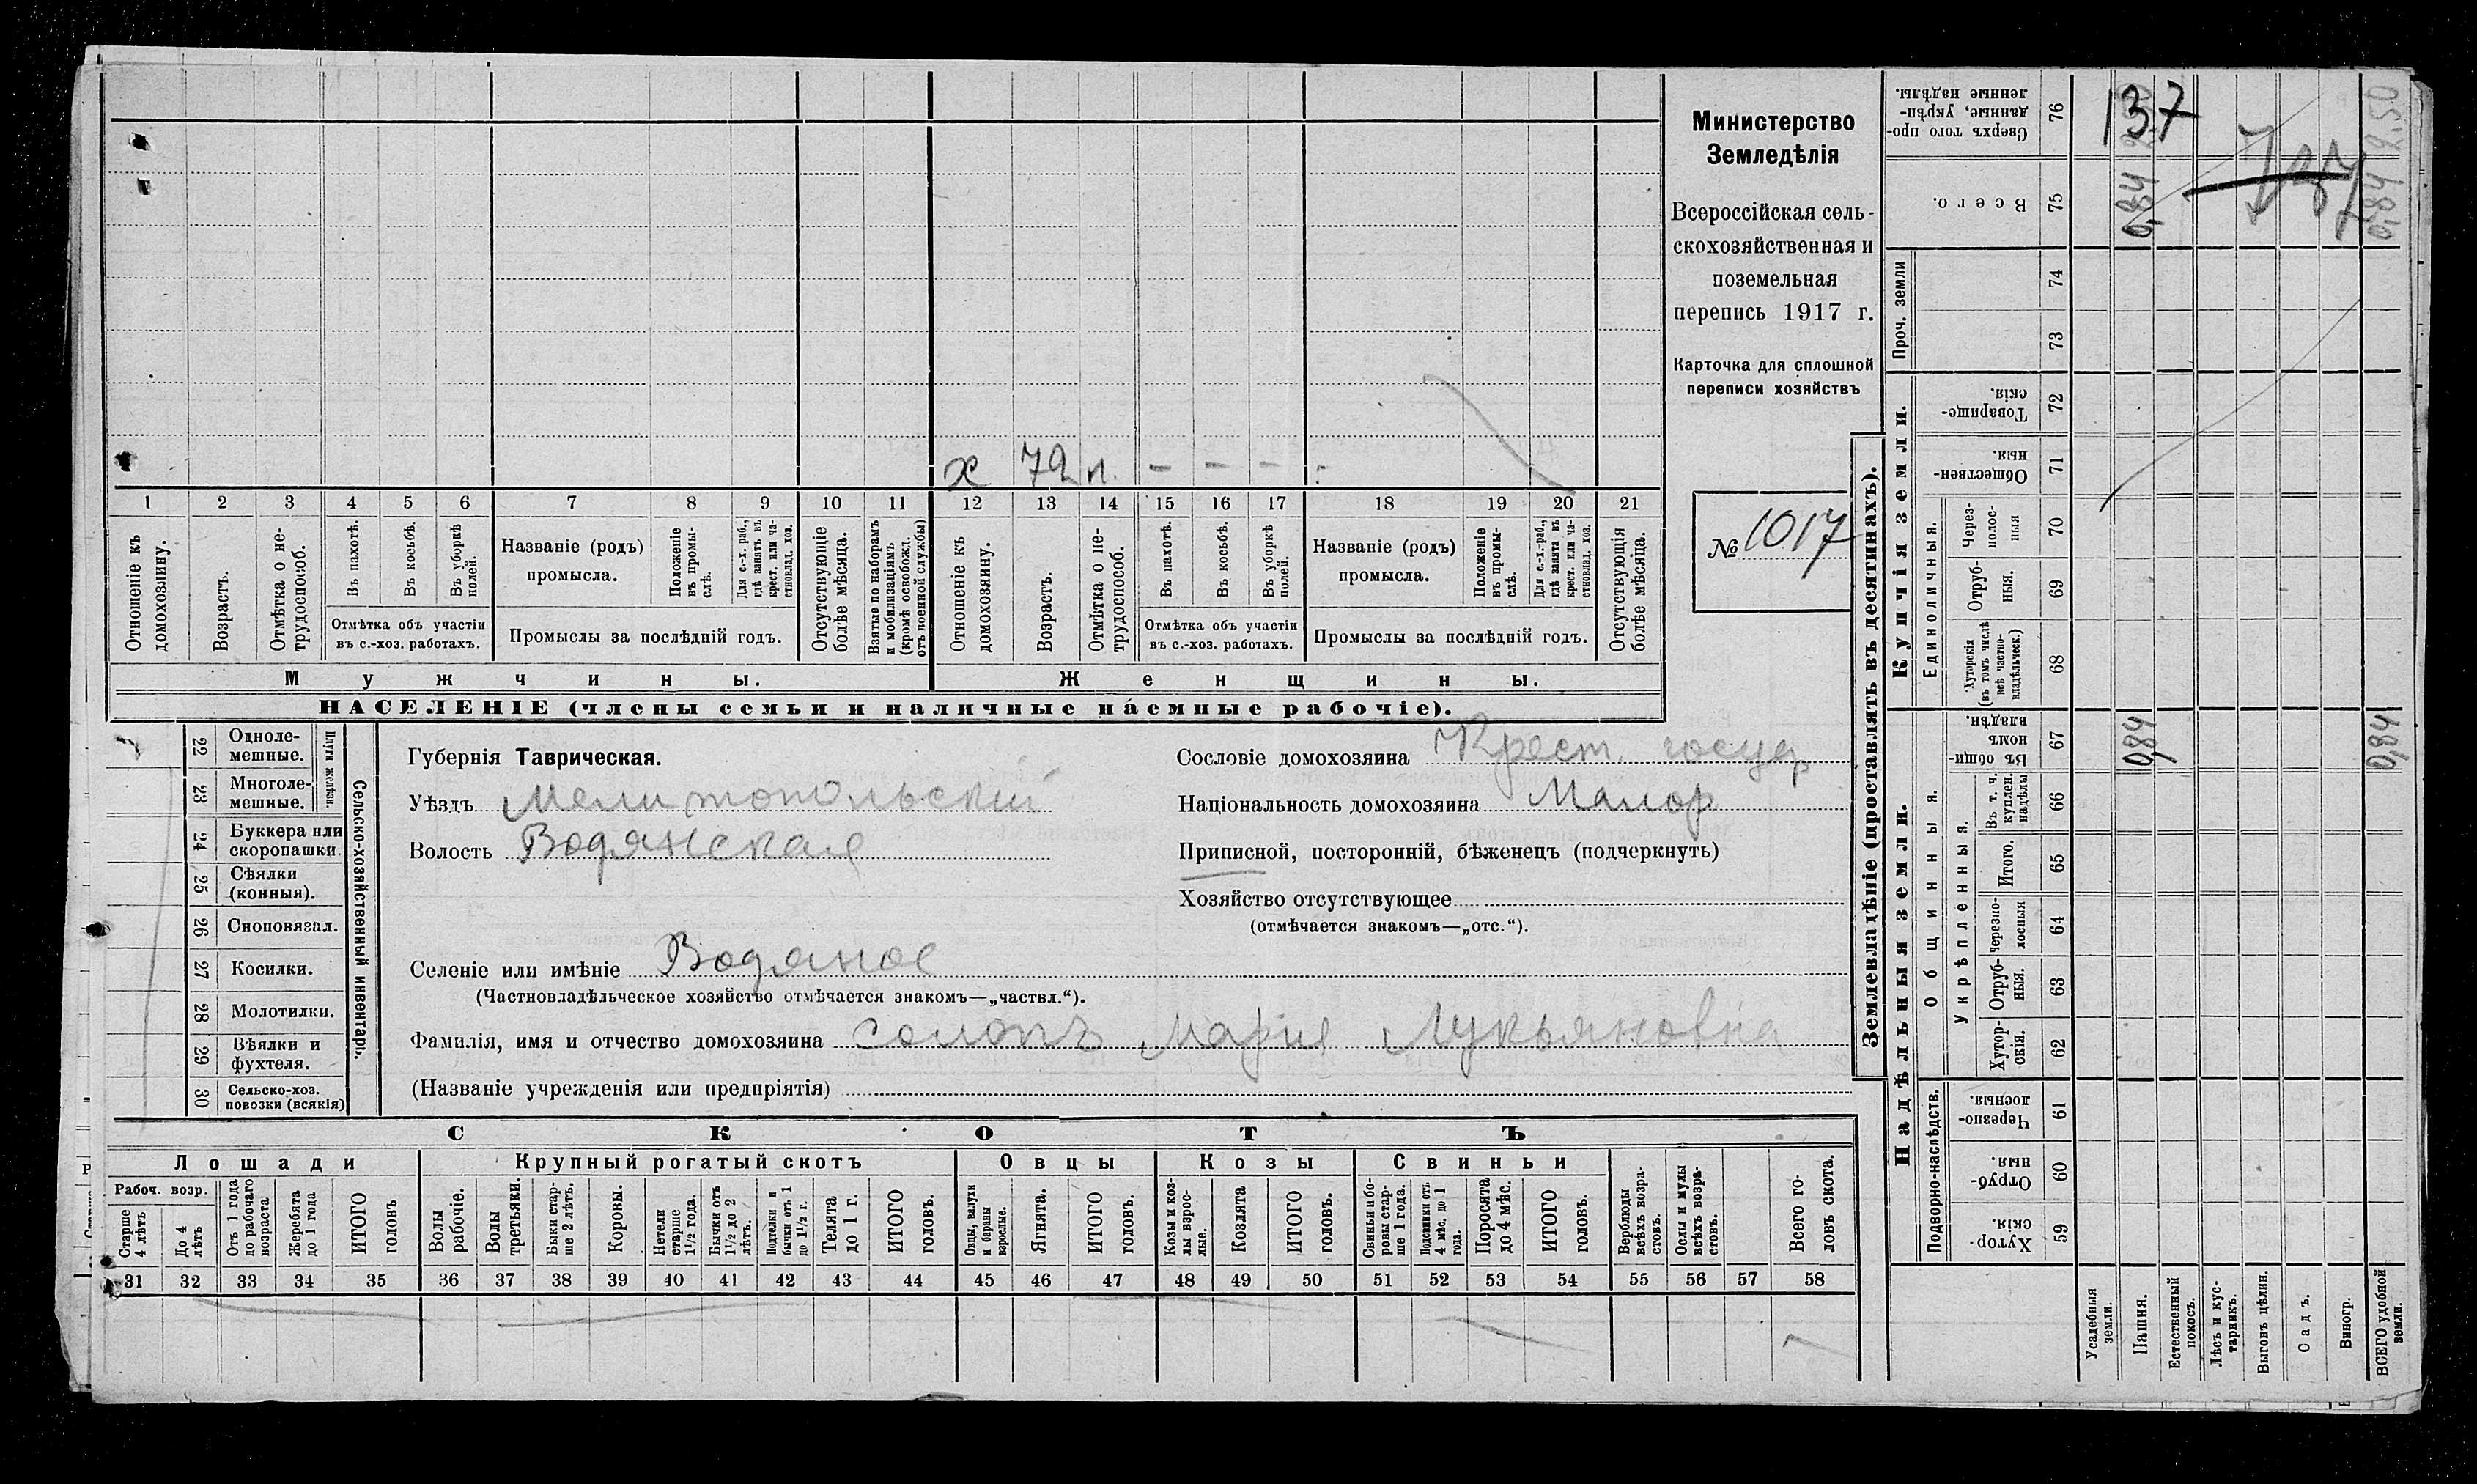 Министерство
Земледѣлія
Всероссійская сель-
скохозяйственная и
поземельная
перепись 1917 г.
Карточка для сплошной
переписи хозяйствъ
№ 1017
х 72 н. - - -
1 2 3 4 5 6 7 8 9 10 11 12 13 14 15 16 17 18 19 20 21
Отношеніе къ домохозяину.
Возрастъ.
Отмѣтка о не-трудоспособ.
Въ пахотѣ.
Въ косьбѣ.
Въ уборкѣ полей.
Отмѣтка объ участіи
въ с.-хоз. работахъ.
Названіе (родъ)
промысла.
Положеніе въ промы-слѣ.
Для с.-х. раб., гдѣ занятъ въ крест. или ча-стновлад. хоз.
Промыслы за послѣдній годъ.
Отсутствующіе болѣе мѣсяца.
Взятые по наборамъ и мобилизаціямъ (кромѣ освобожд. отъ военной службы)
Отношеніе къ домохозяину.
Возрастъ.
Отмѣтка о не-трудоспособ.
Въ пахотѣ.
Въ косьбѣ.
Въ уборкѣ полей.
Отмѣтка объ участіи
въ с.-хоз. работахъ.
Названіе (родъ)
промысла.
Положеніе въ промы-слѣ.
Для с.-х. раб., гдѣ занята въ крест. или ча-стновлад. хоз.
Промыслы за послѣдній годъ.
Отсутствующія болѣе мѣсяца.
Мужчины.
Женщины.
НАСЕЛЕНІЕ (члены семьи и наличные наемные рабочіе).
Сельско-хозяйственный инвентарь.
Плуги желѣзн.
22 Одноле-мешные.
23 Многоле-мешные.
24 Буккера или скоропашки.
25 Сѣялки (конныя).
26 Сноповязал.
27 Косилки.
28 Молотилки.
29 Вѣялки и фухтеля.
30 Сельско-хоз. повозки (всякія)
Губернія Таврическая.
Уѣздъ Мелитопольскій
Волость Водянская
Селеніе или имѣніе Водяное
(Частновладѣльческое хозяйство отмѣчается знакомъ—„частвл.“).
Фамилія, имя и отчество домохозяина Солопъ Марія Лукьяновна
(Названіе учрежденія или предпріятія)
Сословіе домохозяина Крест. госуд
Національность домохозяина Малор
Приписной, посторонній, бѣженецъ (подчеркнуть)
Хозяйство отсутствующее
(отмѣчается знакомъ—„отс.“).
СКОТЪ
Лошади
Крупный рогатый скотъ
Овцы
Козы
Свиньи
Рабоч. возр.
Старше 4 лѣтъ
До 4 лѣтъ
Отъ 1 года до рабочаго возраста
Жеребята до 1 года
ИТОГО головъ
Волы рабочіе.
Волы третьяки.
Быки стар-ше 2 лѣтъ.
Коровы.
Нетели старше 1½ года.
Бычки отъ 1½ до 2 лѣтъ.
Подтелки и бычки отъ 1 до 1½ г.
Телята до 1 г.
ИТОГО головъ.
Овцы, валухи и бараны взрослые.
Ягнята.
ИТОГО головъ.
Козы и коз-лы взрос-лые.
Козлята
ИТОГО головъ.
Свиньи и бо-ровы стар-ше 1 года.
Подсвинки отъ 4 мѣс. до 1 года.
Поросята до 4 мѣс.
ИТОГО головъ.
Верблюды всѣхъ возра-стовъ.
Ослы и мулы всѣхъ возра-стовъ.
Всего го-ловъ скота.
31 32 33 34 35 36 37 38 39 40 41 42 43 44 45 46 47 48 49 50 51 52 53 54 55 56 57 58
Землевладѣніе (проставлять въ десятинахъ).
Надѣльныя земли.
Купчія земли.
Проч. земли
Подворно-наслѣдств.
Общинныя.
Укрѣпленныя.
Единоличныя.
76 Сверхъ того про-данные, укрѣп-ленные надѣлы.
137
137
75 Всего.
0,84
0,84 2,50
74
73
72 Товарище-скія.
71 Обществен-ныя.
70 Через-полос-ныя
69 Отруб-ныя.
68 Хуторскія (въ томъ числѣ всѣ частно-владѣльческ.)
67 Въ общин-номъ владѣн.
0,84
0,84
66 Въ т. ч. куплен. надѣлы
65 Итого.
64 Черезпо-лосныя
63 Отруб-ныя.
62 Хутор-скія.
61 Черезпо-лосныя.
60 Отруб-ныя.
59 Хутор-скія.
Усадебныя земли.
Пашня.
Естественный покосъ.
Лѣсъ и кус-тарникъ.
Выгонъ цѣлин.
Садъ.
Виногр.
ВСЕГО удобной земли.